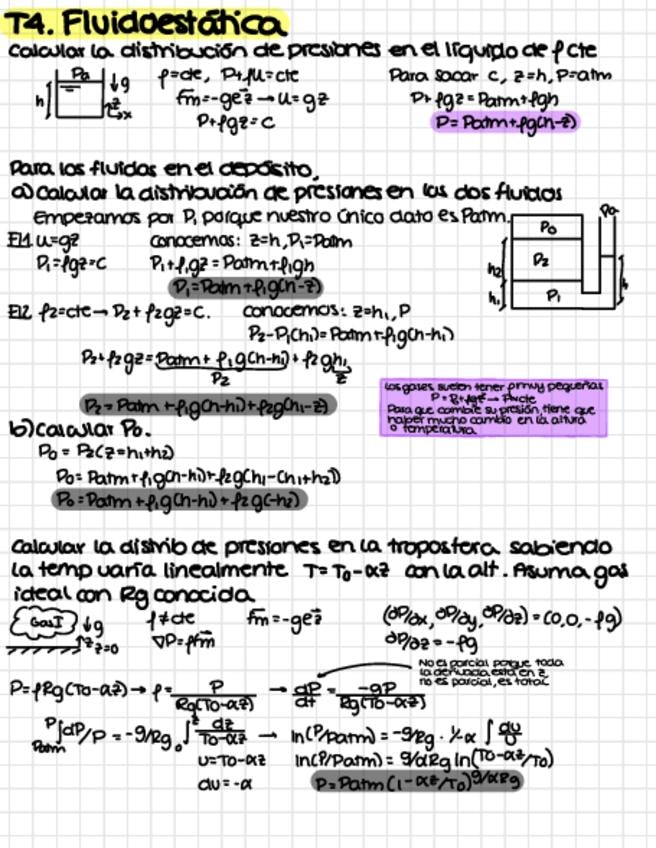 T4. Fluidoestática
Calcular la distribución de presiones en el líquido de ρ cte
Pa
g
h
z
x
ρ=cte, P+ρU=cte
fm=-gez → U=gz
P+ρgz=C
Para sacar C, z=h, P=atm
P+ρgz=Patm+ρgh
P=Patm+ρg(h-z)
Para los fluidos en el depósito.
a) Calcular la distribución de presiones en los dos fluidos
Empezamos por P1 porque nuestro único dato es Patm.
Fl1. U=gz
conocemos: z=h, P1=Patm
P1=ρgz=C
P1+ρ1gz=Patm+ρ1gh
P1=Patm+ρ1g(h-z)
Po
Pa
P2
P1
h2
h1
h
Fl2. ρ2=cte → P2+ρ2gz=C.
conocemos: z=h1, P
P2=P1(h1)=Patm+ρ1g(h-h1)
P2+ρ2gz=Patm+ρ1g(h-h1)+ρ2gh1
P2
z
P2=Patm+ρ1g(h-h1)+ρ2g(h1-z)
Los gases suelen tener ρ muy pequeñas
→ P≈cte
Para que cambie su presión, tiene que
haber mucho cambio en la altura
o temperatura.
b) Calcular Po.
Po=P2(z=h1+h2)
Po=Patm+ρ1g(h-h1)+ρ2g(h1-(h1+h2))
Po=Patm+ρ1g(h-h1)+ρ2g(-h2)
Calcular la distrib de presiones en la troposfera sabiendo
la temp varía linealmente T=To-αz con la alt. Asuma gas
ideal con Rg conocida
Gas I
g
z
z=0
ρ≠cte
fm=-gez
(∂P/∂x, ∂P/∂y, ∂P/∂z)=(0,0,-ρg)
∇P=ρfm
∂P/∂z=-ρg
No es parcial porque toda
la derivada está en z
no es parcial, es total
P=ρRg(To-αz) → ρ= P/Rg(To-αz) → dP/dt = -gP/Rg(To-αz)
P∫Patm dP/P = -g/Rg 0∫z dz/To-αz → ln(P/Patm)=-g/Rg · 1/-α ∫ du/U
U=To-αz
ln(P/Patm)=g/αRg ln(To-αz/To)
du=-α
P=Patm(1-αz/To)^g/αRg